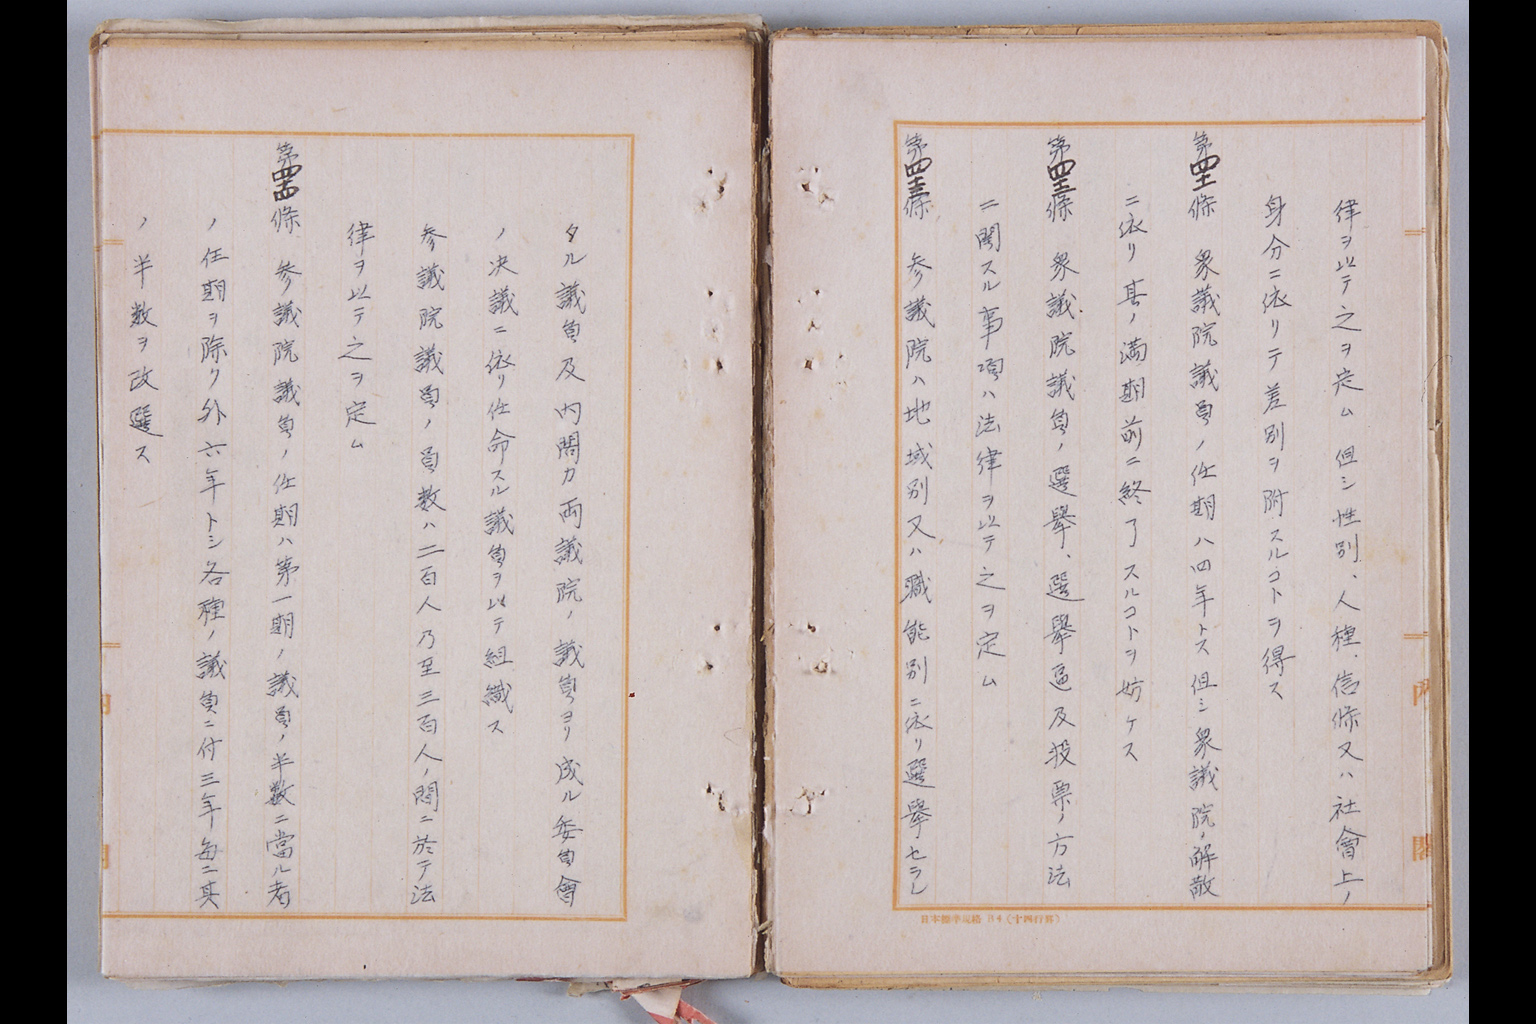 律ヲ以テ之ヲ定ム但シ性別、人種、信條又ハ社會上ノ
身分ニ依リテ差別ヲ附スルコトヲ得ス
第四十一條 衆議院議員ノ任期ハ四年トス但シ衆議院ノ解散
ニ依リ其ノ満期前ニ終了スルコトヲ妨ケス
第四十二條 衆議院議員ノ選擧、選擧區及投票ノ方法
ニ関スル事項ハ法律ヲ以テ之ヲ定ム
第四十三條 参議院ハ地域別又ハ職能別ニ依リ選擧セラレ
日本標準規格 B4(十四行罫)
内閣
タル議員及内閣カ両議院ノ議員ヨリ成ル委員會
ノ决議ニ依リ任命スル議員ヲ以テ組織ス
参議院議員ノ員数ハ二百人乃至三百人ノ間ニ於テ法
律ヲ以テ之ヲ定ム
第四十四條 参議院議員ノ任期ハ第一期ノ議員ノ半數ニ當ル者
ノ任期ヲ除ク外六年トシ各種ノ議員ニ付三年毎ニ其
ノ半数ヲ改選ス